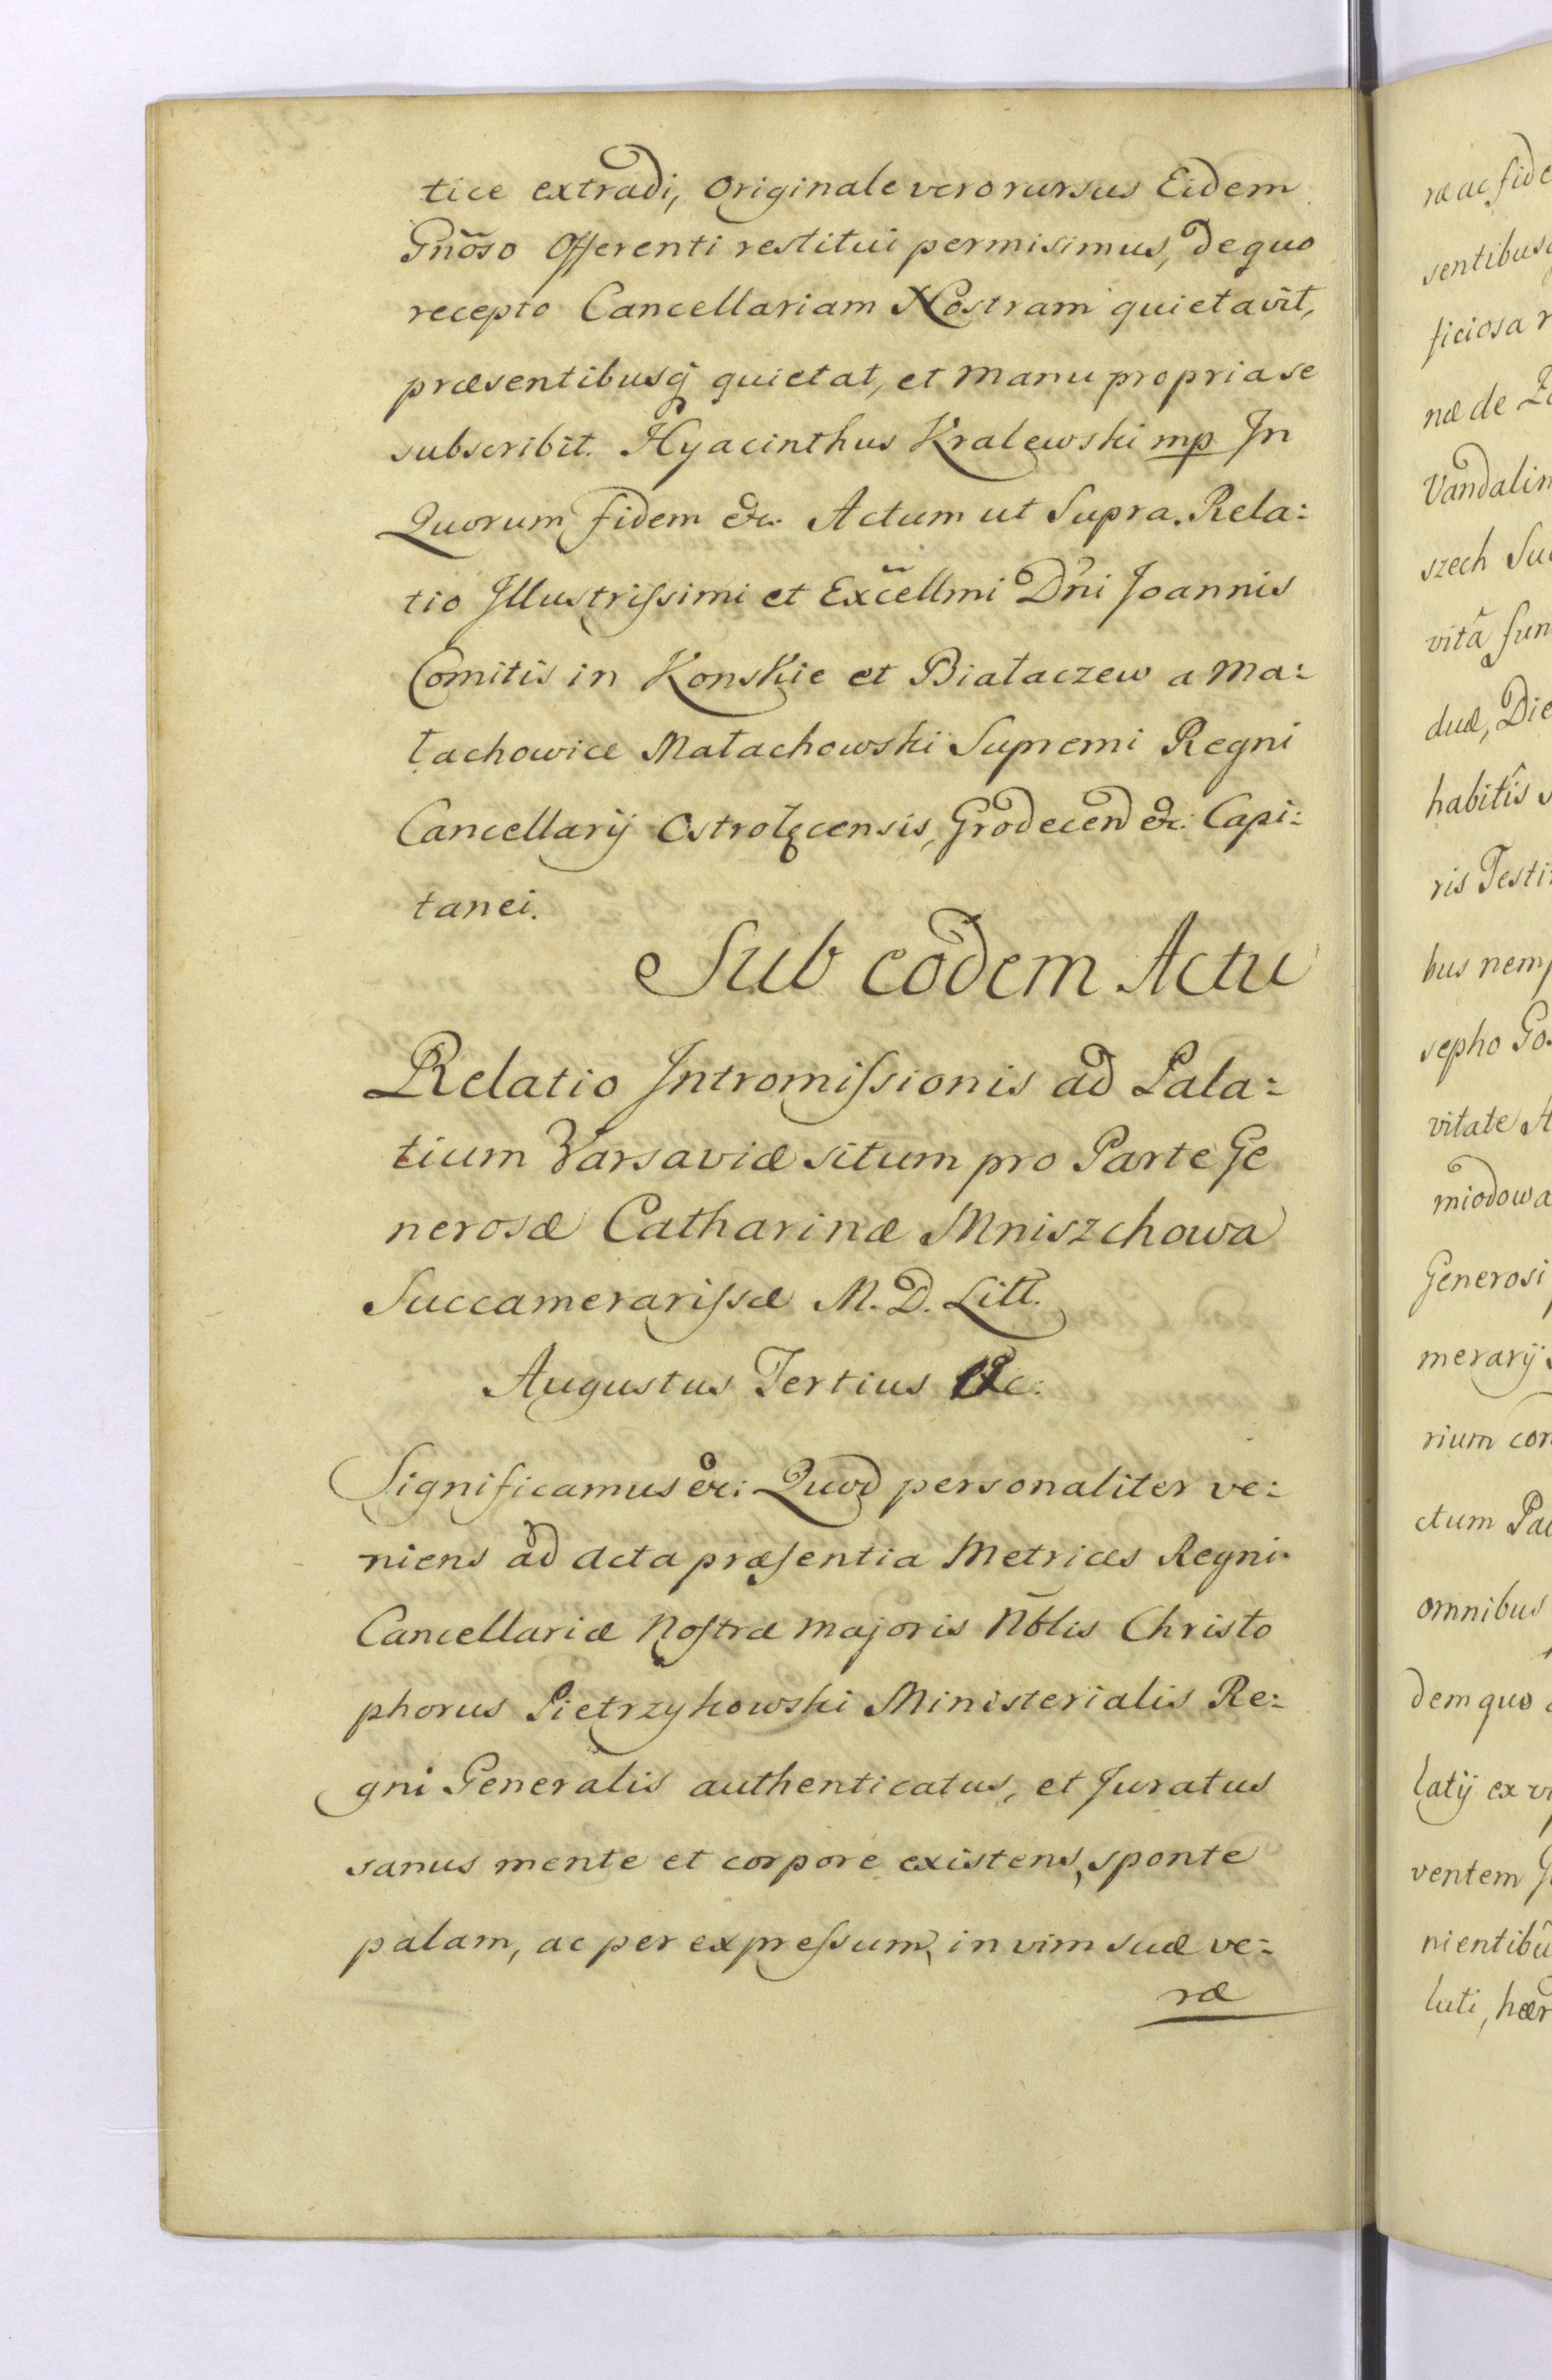 tice extradi, Originale vero rursus Eidem
Gnõso Offerenti restitui permisimus, de quo
recepto Cancellariam Nostram quietavit,
præsentibusq̃ quietat, et Manu propria se
subscribit. Hyacinthus Kralewski mp In
Quorum fidem &c. Actum ut Supra. Rela:
tio Jllustriſsimi et Exc̃ellmi Dñi Joannis
Comitis in Konskie et Białaczew a Ma:
łachowice Małachowski Supremi Regni
Cancellarij Ostrołęcensis, Grodecen̄ &c: Capi:
tanei.
Sub eodem Actu
Relatio Jntromiſsionis ad Pala:
tium Varsaviæ situm pro Parte Ge
nerosæ Catharinæ Mniszchowa
Succamerariſsæ M. D. Litt.
Augustus Tertius &c:
Significamus &c: Quod personaliter ve:
niens ad acta præſentia Metrices Regni
Cancellariæ Noſtræ Majoris Nõblis Christo
phorus Pietrzykowski Ministerialis Re:
gni Generalis authenticatus, et Juratus
sanus mente et corpore existens, sponte
palam, ac per expreſsum, in vim suæ ve:
ræ
ræ ac fide
sentibus
ficiosa r
næ de
Vandalin
szech Su
vitã fun
duæ, Die
habitîs
ris Testi
bus nemp
sepho Go
vitate A
miodowa
Generosi
merarij
rium con
ctum Pa
omnibus
dem quo
latij ex vi
ventem
nientibũ
luti, hær